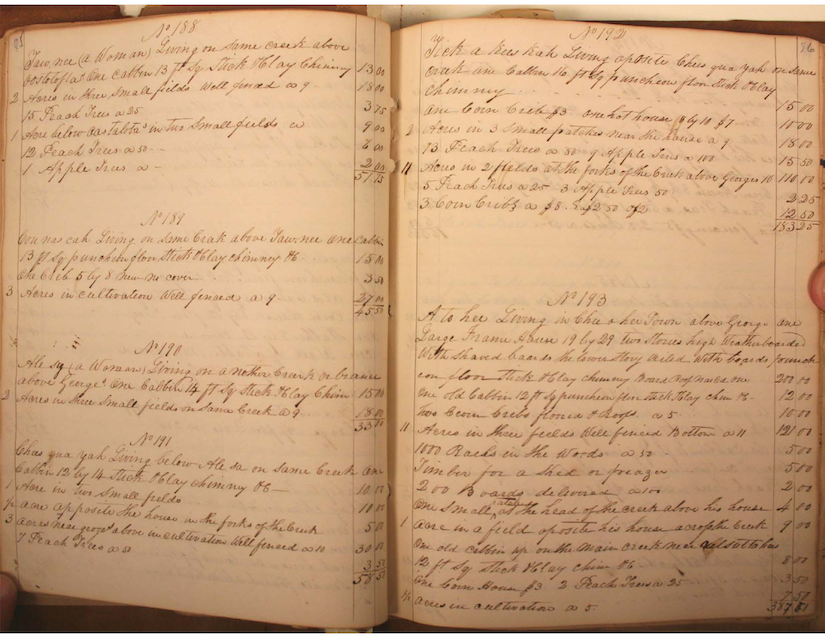 85
No 188
Taw, nee (a Woman) Living on same creek above
One Cabbin 13 ft Sq Stick & Clay Chimny 13 00
2 Acres in three Small fields Well fenced a 9. 18 00
15 Peach Trees a 25 3 75
1 Acre below in two Small fields a 9 00
12 Peach Trees a 50 6 00
1 Apple Tree a 2 00
51 75
No 189
Living on Same Creek above Taw, nee One Cabbin
13 ft Sq puncheon floor Stick & Clay chimney &c. 15 00
One Crib 5 by 8 New no cover 3 50
3 Acres in cultivation Well fenced a 9. 27 00
45 50
No 190
(a Woman) Living on a nother Creek or
above George's One Cabbin 14 ft Sq Stick & Clay Chim 15 00
2 Acres in three Small fields on Same Creek a 9 18 00
33 00
No 191
Chas qua yah Living below on Same Creek one
Cabbin 12 by 14 Stick & Clay chimney &c 10 00
1 Acre in two Small fields 10 00
½ acre apposite the house in the forks of the Creek 5 00
3 Acres near above in cultivation Well fenced a 10 30 00
7 Peach Trees a 50 3 50
58 50
86
No 192
Living aposite Chees qua yah on Same
Creek one Cabbin 16 ft Sq puncheon floor Stick & Clay
Chimney 15 00
One Corn Crib $3 one hot house 8 by 10 $7 10 00
2 Acres in 3 Small patches near the house a 9 18 00
13 Peach Trees a 50 9 Apple Trees a 100 15 50
11 Acres in 2 fields at the forks of the Creek above Georges 10 110 00
5 Peach Trees a 25 3 Apple Trees 50 2 25
3 Corn Cribs a $8. $2 50 $2 12 50
183 25
No 193
A to hee Living in Chee o hee Town above George one
Large Frame House 19 by 29 two Stories high Weatherboarded
With Shaved boards the lower Story Ceiled With boards punch
eon floor Stick & Clay chimney Board Roof nailed one 200 00
One old Cabbin 12 ft Sq puncheon floor Stick & Clay chim &c. 12 00
two Corn Cribs floored & Roofs a 5 10 00
11 Acres in three fields Well fenced Bottom a 11 121 00
1000 Rails in the Woods a 50 5 00
Timber for a Shed or 5 00
200 Boards delivered a 100 2 00
One Small at the head of the creek above his house 4 00
1 acre in a field oposite his house across the Creek 9 00
One old cabbin up on the main creek near
12 ft Sq Stick & Clay chim &c 8 00
One Corn House $3 2 Peach Trees a 25 3 50
1½ Acres in cultivation a 5 7 50
387 00